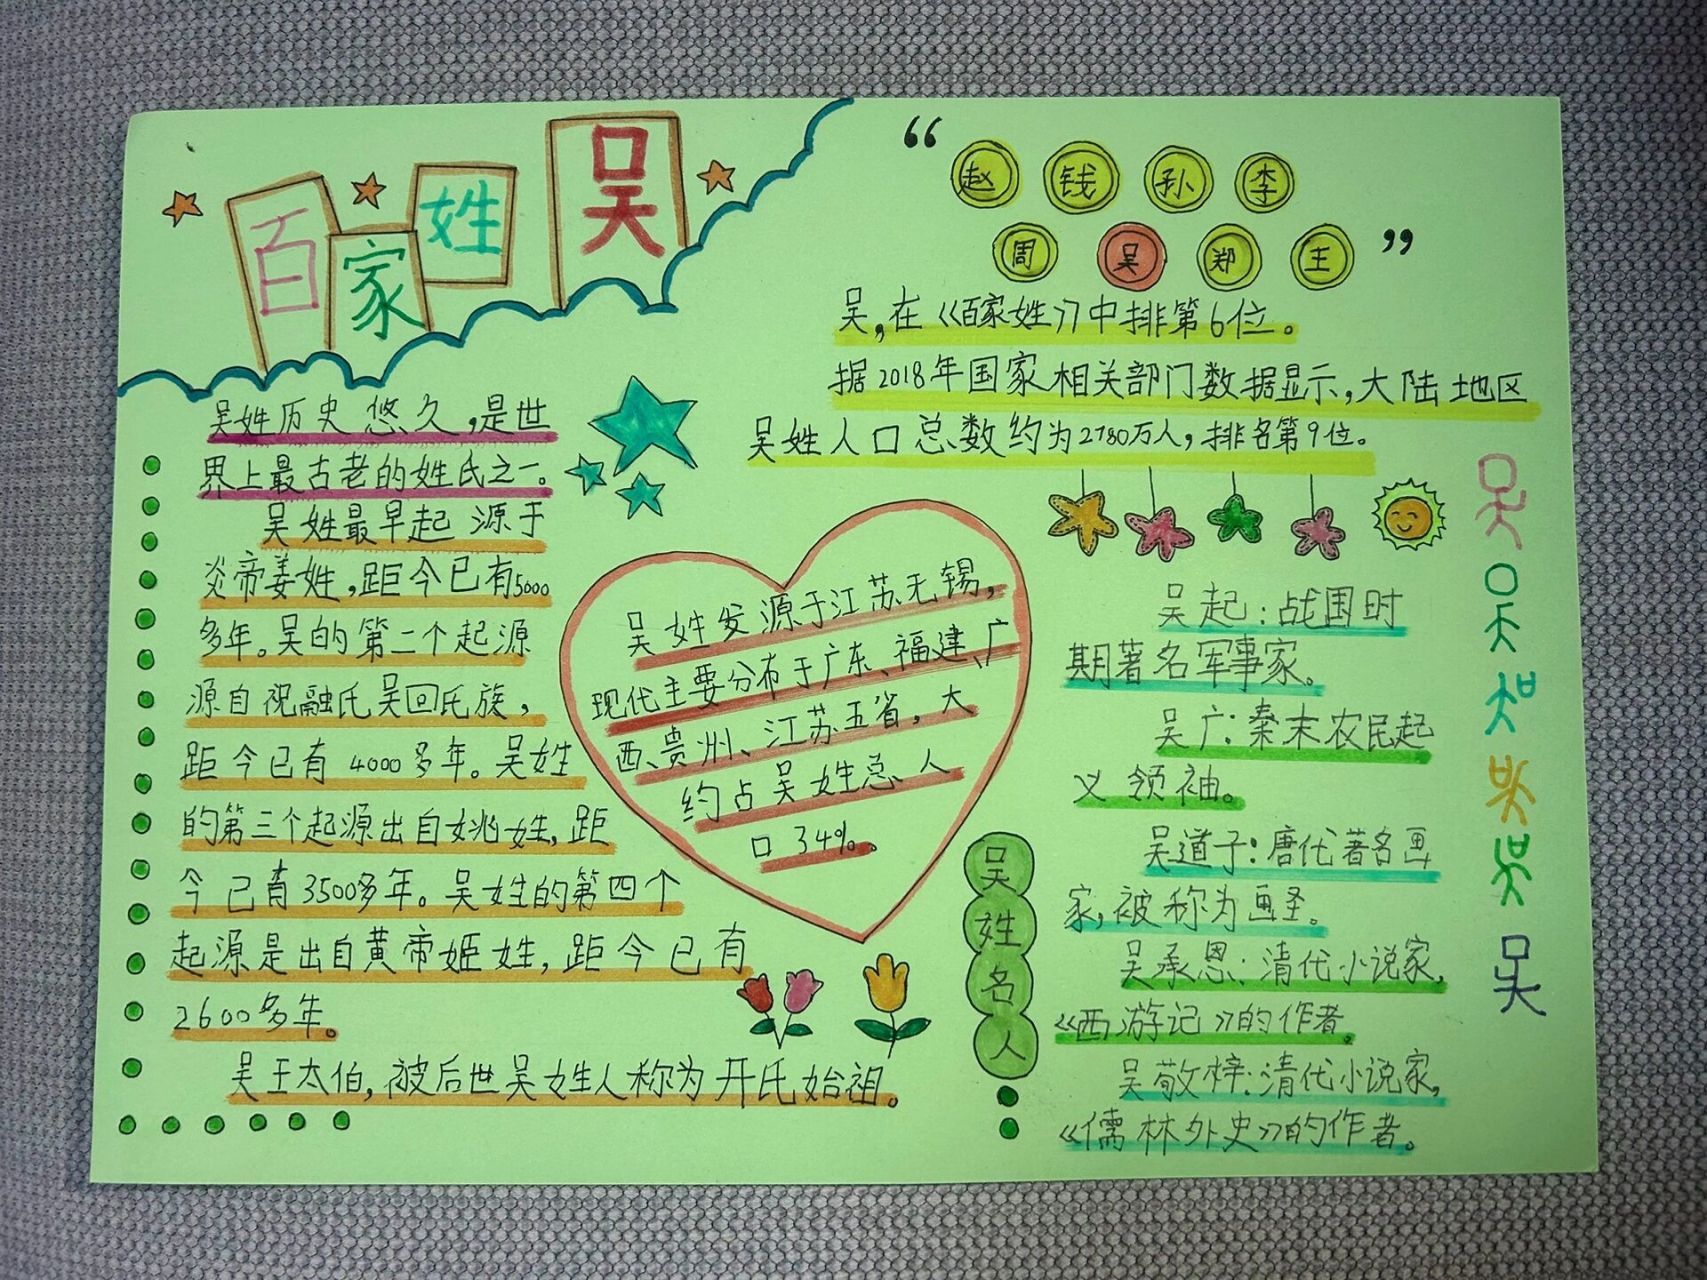 百家姓 吴
吴姓历史悠久,是世
界上最古老的姓氏之一。
吴姓最早起源于
炎帝姜姓,距今已有5000
多年。吴的第二个起源
源自祝融氏吴回氏族,
距今已有4000多年。吴姓
的第三个起源出自姚姓,距
今已有3500多年。吴姓的第四个
起源是出自黄帝姬姓,距今已有
2600多年。
吴王太伯,被后世吴姓人称为开氏始祖。
“赵 钱 孙 李
周 吴 郑 王”
吴,在《百家姓》中排第6位。
据2018年国家相关部门数据显示,大陆地区
吴姓人口总数约为2780万人,排名第9位。
吴姓发源于江苏无锡,
现代主要分布于广东、福建、广
西、贵州、江苏五省,大
约占吴姓总人
口34%。
吴姓名人
吴起:战国时
期著名军事家。
吴广:秦末农民起
义领袖。
吴道子:唐代著名画
家,被称为画圣。
吴承恩:清代小说家,
《西游记》的作者。
吴敬梓:清代小说家,
《儒林外史》的作者。
吴